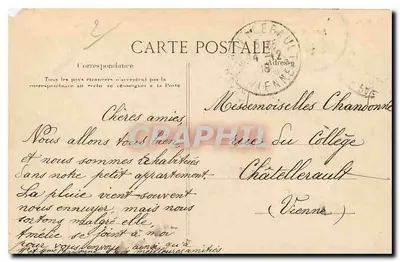 2
CARTE POSTALE
Correspondance
Tous les pays étrangers n'acceptent pas la
correspondance au verso se renseigner à la Poste
Adresse
VIENNE
Chères amies
Nous allons tous bien
et nous sommes
dans notre petit appartement.
La pluie vient souvent
nous ennuyer mais nous
sortons malgré elle.
Amélie se joint à moi
pour vous envoyer ainsi qu'à
meilleures amitiés
Mesdemoiselles Chandonné
rue du Collège
Châtellerault
(Vienne)
CPARAMA